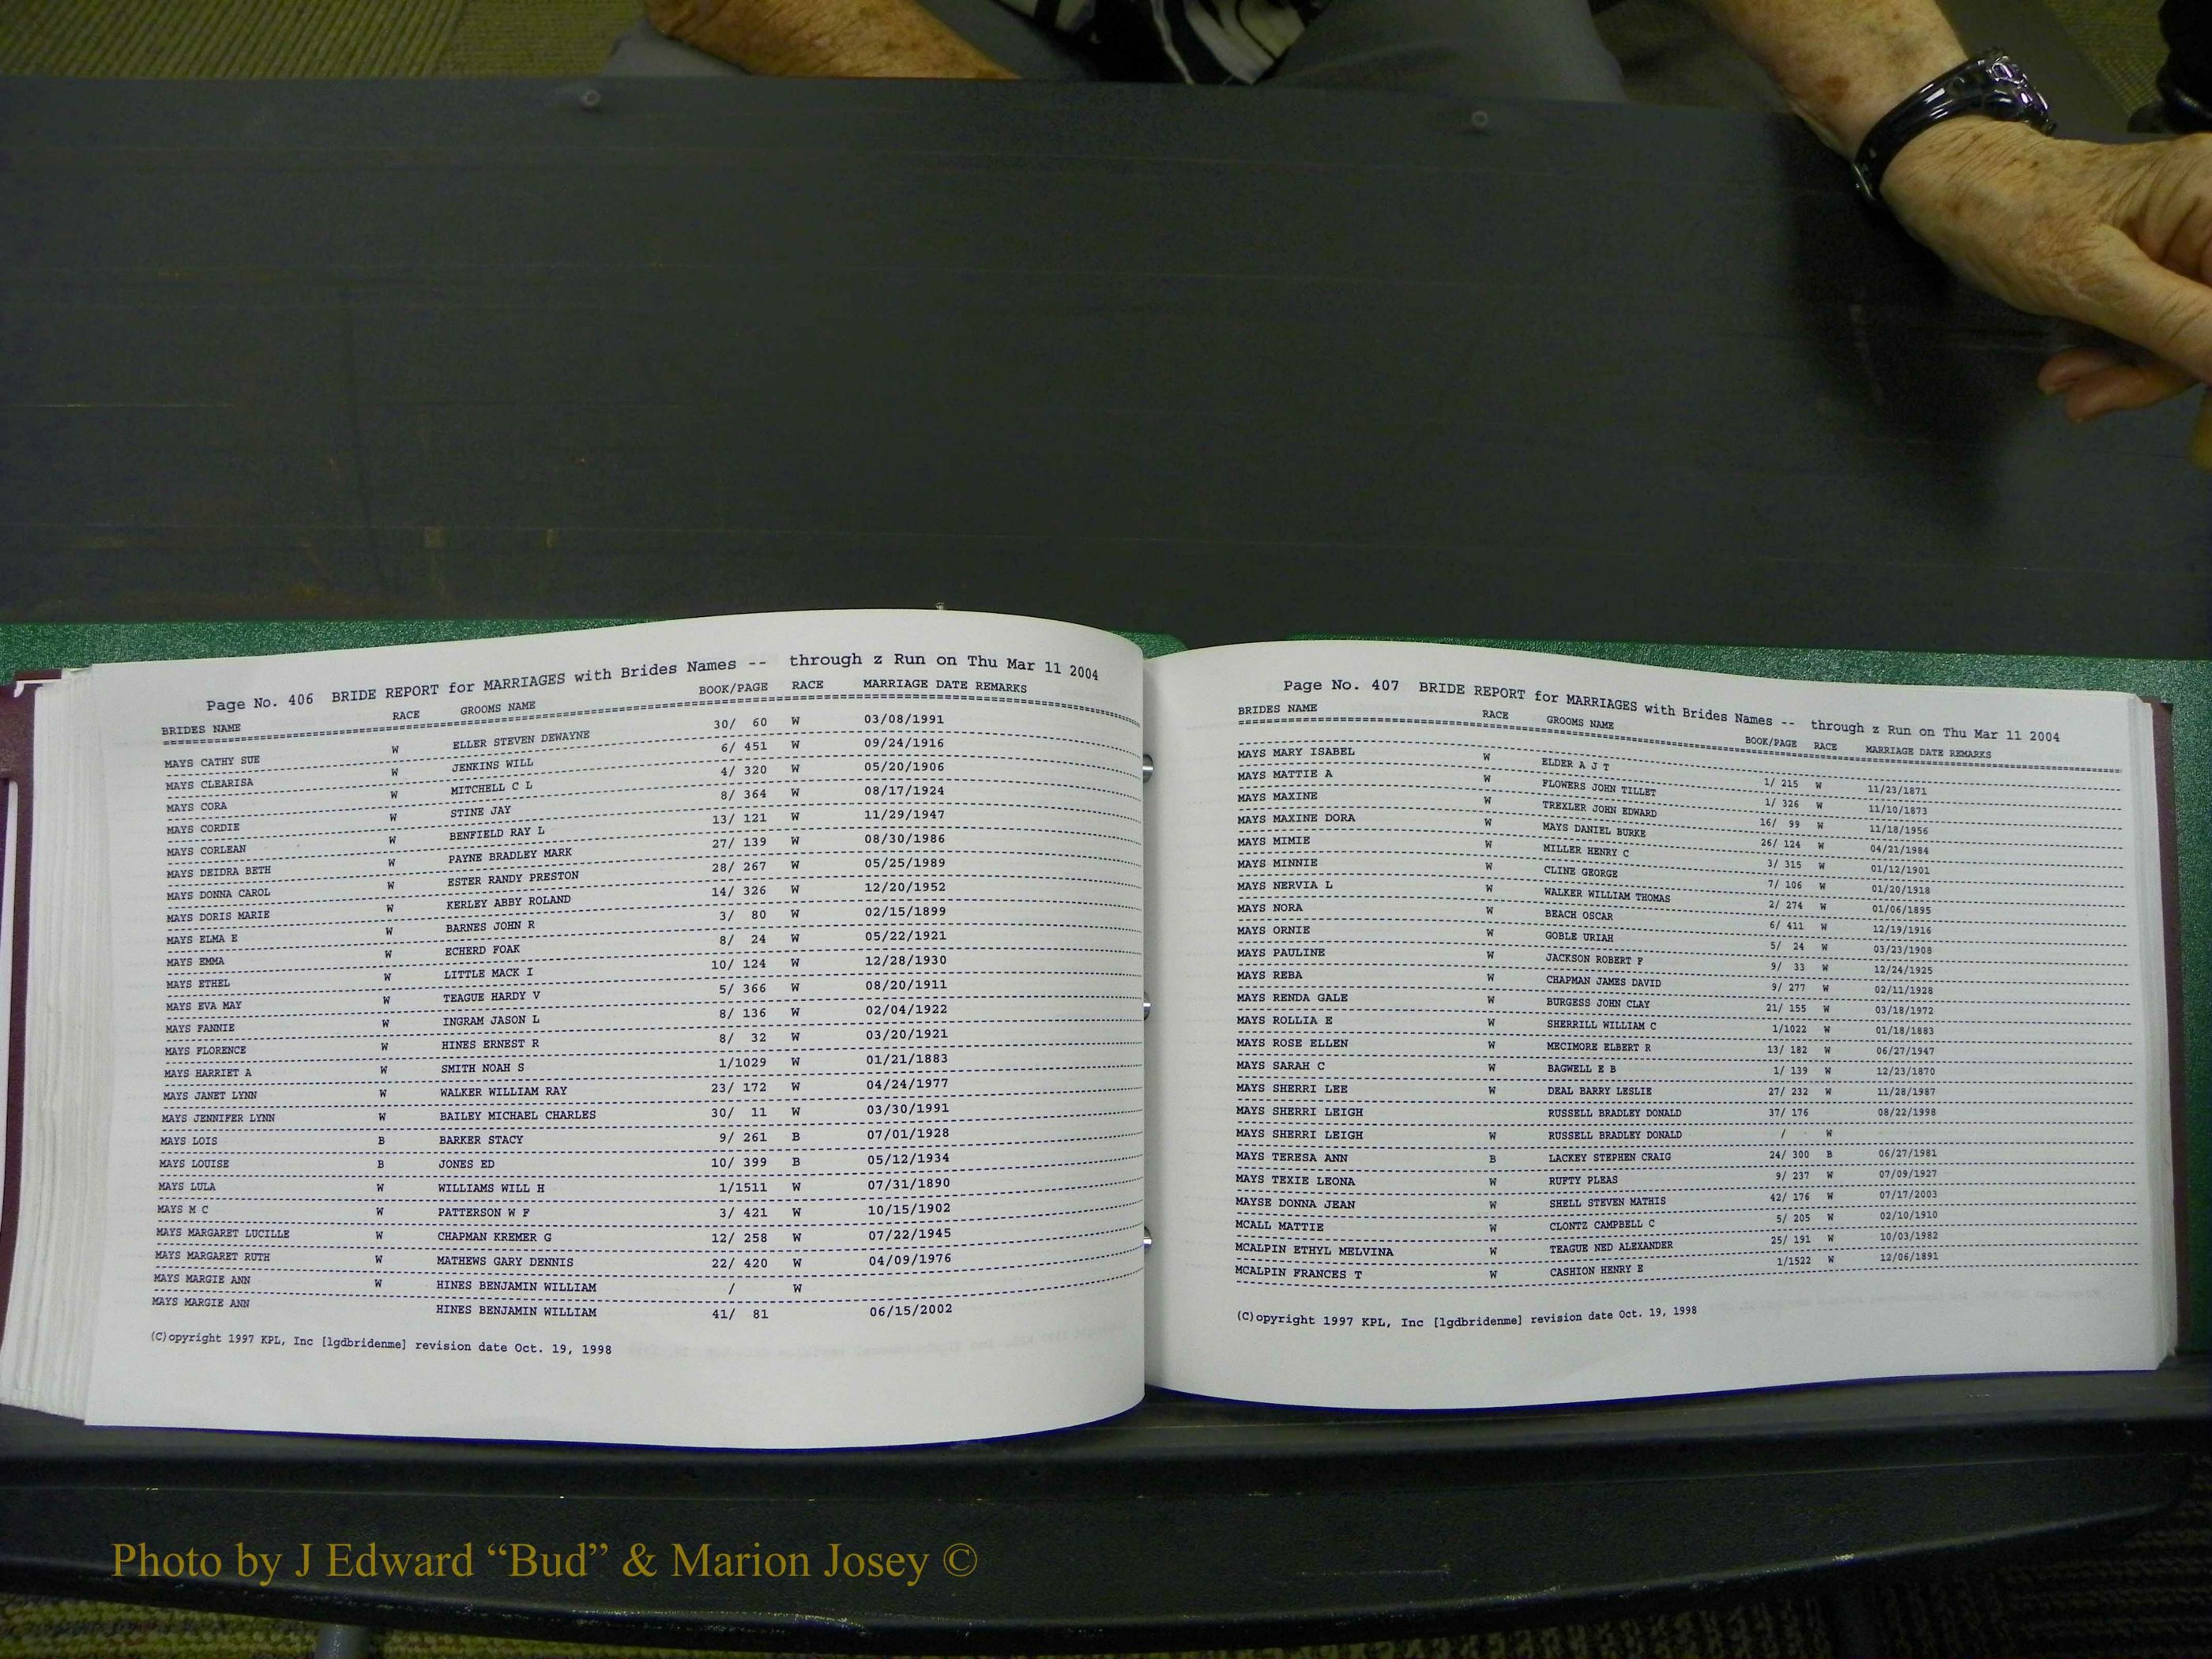 Page No. 406 BRIDE REPORT for MARRIAGES with Brides Names -- through z Run on Thu Mar 11 2004
BRIDES NAME RACE GROOMS NAME BOOK/PAGE RACE MARRIAGE DATE REMARKS
MAYS CATHY SUE W ELLER STEVEN DEWAYNE 30/ 60 W 03/08/1991
MAYS CLEARISA W JENKINS WILL 6/ 451 W 09/24/1916
MAYS CORA W MITCHELL C L 4/ 320 W 05/20/1906
MAYS CORDIE W STINE JAY 8/ 364 W 08/17/1924
MAYS CORLEAN W BENFIELD RAY L 13/ 121 W 11/29/1947
MAYS DEIDRA BETH W PAYNE BRADLEY MARK 27/ 139 W 08/30/1986
MAYS DONNA CAROL W ESTER RANDY PRESTON 28/ 267 W 05/25/1989
MAYS DORIS MARIE W KERLEY ABBY ROLAND 14/ 326 W 12/20/1952
MAYS ELMA E W BARNES JOHN R 3/ 80 W 02/15/1899
MAYS EMMA W ECHERD FOAK 8/ 24 W 05/22/1921
MAYS ETHEL W LITTLE MACK I 10/ 124 W 12/28/1930
MAYS EVA MAY W TEAGUE HARDY V 5/ 366 W 08/20/1911
MAYS FANNIE W INGRAM JASON L 8/ 136 W 02/04/1922
MAYS FLORENCE W HINES ERNEST R 8/ 32 W 03/20/1921
MAYS HARRIET A W SMITH NOAH S 1/1029 W 01/21/1883
MAYS JANET LYNN W WALKER WILLIAM RAY 23/ 172 W 04/24/1977
MAYS JENNIFER LYNN W BAILEY MICHAEL CHARLES 30/ 11 W 03/30/1991
MAYS LOIS B BARKER STACY 9/ 261 B 07/01/1928
MAYS LOUISE B JONES ED 10/ 399 B 05/12/1934
MAYS LULA W WILLIAMS WILL H 1/1511 W 07/31/1890
MAYS M C W PATTERSON W F 3/ 421 W 10/15/1902
MAYS MARGARET LUCILLE W CHAPMAN KREMER G 12/ 258 W 07/22/1945
MAYS MARGARET RUTH W MATHEWS GARY DENNIS 22/ 420 W 04/09/1976
MAYS MARGIE ANN W HINES BENJAMIN WILLIAM / W
MAYS MARGIE ANN HINES BENJAMIN WILLIAM 41/ 81 06/15/2002
(C)opyright 1997 KPL, Inc [lgdbridenme] revision date Oct. 19, 1998
Page No. 407 BRIDE REPORT for MARRIAGES with Brides Names -- through z Run on Thu Mar 11 2004
BRIDES NAME RACE GROOMS NAME BOOK/PAGE RACE MARRIAGE DATE REMARKS
MAYS MARY ISABEL W ELDER A J T 1/ 215 W 11/23/1871
MAYS MATTIE A W FLOWERS JOHN TILLET 1/ 326 W 11/10/1873
MAYS MAXINE W TREXLER JOHN EDWARD 16/ 99 W 11/18/1956
MAYS MAXINE DORA W MAYS DANIEL BURKE 26/ 124 W 04/21/1984
MAYS MIMIE W MILLER HENRY C 3/ 315 W 01/12/1901
MAYS MINNIE W CLINE GEORGE 7/ 106 W 01/20/1918
MAYS NERVIA L W WALKER WILLIAM THOMAS 2/ 274 W 01/06/1895
MAYS NORA W BEACH OSCAR 6/ 411 W 12/19/1916
MAYS ORNIE W GOBLE URIAH 5/ 24 W 03/23/1908
MAYS PAULINE W JACKSON ROBERT F 9/ 33 W 12/24/1925
MAYS REBA W CHAPMAN JAMES DAVID 9/ 277 W 02/11/1928
MAYS RENDA GALE W BURGESS JOHN CLAY 21/ 155 W 03/18/1972
MAYS ROLLIA E W SHERRILL WILLIAM C 1/1022 W 01/18/1883
MAYS ROSE ELLEN W MECIMORE ELBERT R 13/ 182 W 06/27/1947
MAYS SARAH C W BAGWELL E B 1/ 139 W 12/23/1870
MAYS SHERRI LEE W DEAL BARRY LESLIE 27/ 232 W 11/28/1987
MAYS SHERRI LEIGH RUSSELL BRADLEY DONALD 37/ 176 08/22/1998
MAYS SHERRI LEIGH W RUSSELL BRADLEY DONALD / W
MAYS TERESA ANN B LACKEY STEPHEN CRAIG 24/ 300 B 06/27/1981
MAYS TEXIE LEONA W RUFTY PLEAS 9/ 237 W 07/09/1927
MAYSE DONNA JEAN W SHELL STEVEN MATHIS 42/ 176 W 07/17/2003
MCALL MATTIE W CLONTZ CAMPBELL C 5/ 205 W 02/10/1910
MCALPIN ETHYL MELVINA W TEAGUE NED ALEXANDER 25/ 191 W 10/03/1982
MCALPIN FRANCES T W CASHION HENRY E 1/1522 W 12/06/1891
(C)opyright 1997 KPL, Inc [lgdbridenme] revision date Oct. 19, 1998
Photo by J Edward “Bud” & Marion Josey ©